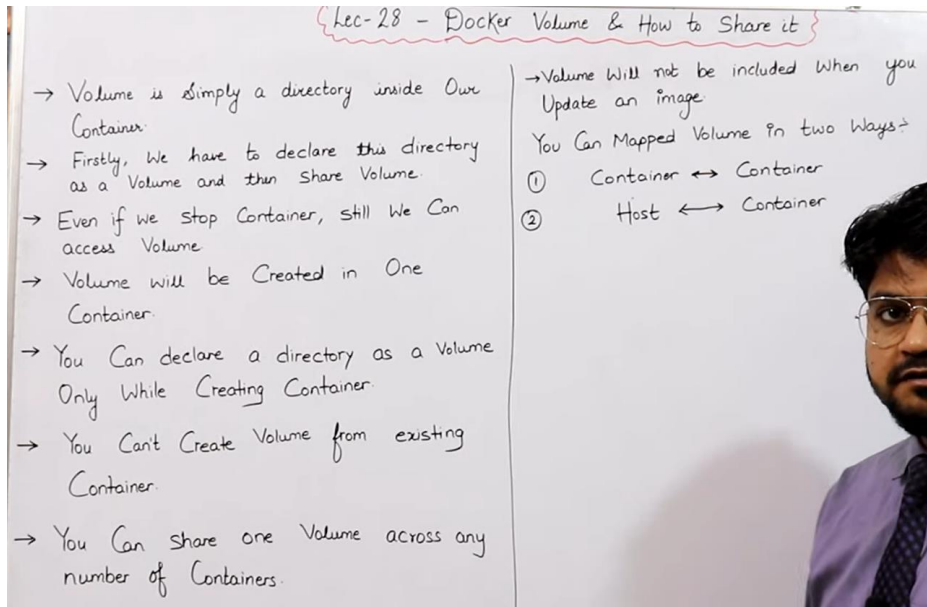 Lec-28 - Docker Volume & How to Share it
→ Volume is Simply a directory inside Our
Container.
→ Firstly, We have to declare this directory
as a Volume and then Share Volume.
→ Even if we stop Container, still We Can
access Volume.
→ Volume will be Created in One
Container.
→ You Can declare a directory as a Volume
Only While Creating Container.
→ You Can't Create Volume from existing
Container.
→ You Can share one Volume across any
number of Containers.
→ Volume Will not be included When you
Update an image.
You Can Mapped Volume in two Ways:-
① Container ↔ Container
② Host ↔ Container